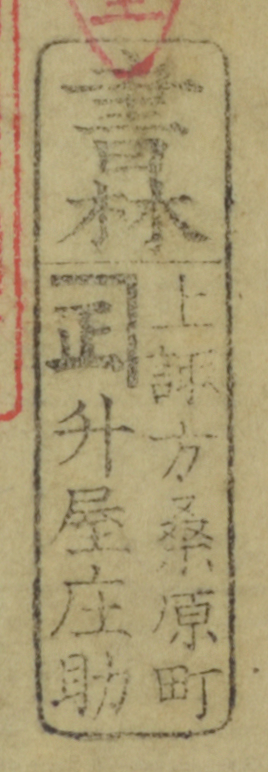 書林
上諏方桑原町
正升屋庄助